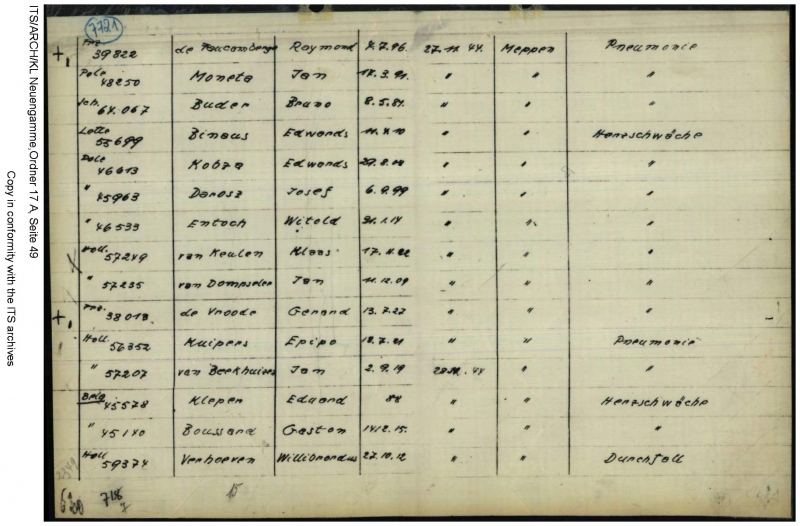 ITS/ARCH/KL Neuengamme, Ordner 17 A, Seite 49
Copy in conformity with the ITS archives
7721
Frz. 39822 de Raymond 7.7.96. 27.11.44. Meppen Pneumonie
Pole 48250 Moneta Jan " " "
Sch. 64.067 Buder Bruno 8.5.81. " " "
Lette 55699 Binaus Edwards 11.4.10 " " Herzschwäche
Pole 46613 Kobza Edwards 29.8.04 " " "
" 45963 Darosz Josef 6.9.99 " " "
" 46533 Entoch Witold 31.1.14 " " "
Holl. 57249 van Keulen Klaas 17.11.22 " " "
" 57235 van Jan 11.12.09 " " "
Frz. 38013. de Vroode Gerard 13.7.27 " " "
Holl. 56352 Kuipers Epipo 18.7.01 " " Pneumonie
" 57207 van Beekhuizen Jan 2.9.19 28.11.44 " "
Belg. 45578 Kleper Eduard 88 " " Herzschwäche
" 45140 Boussard Gaston 14.12.15. " " "
Holl 59374 Verhoeven Willibrordus 27.10.12 " " Durchfall
15